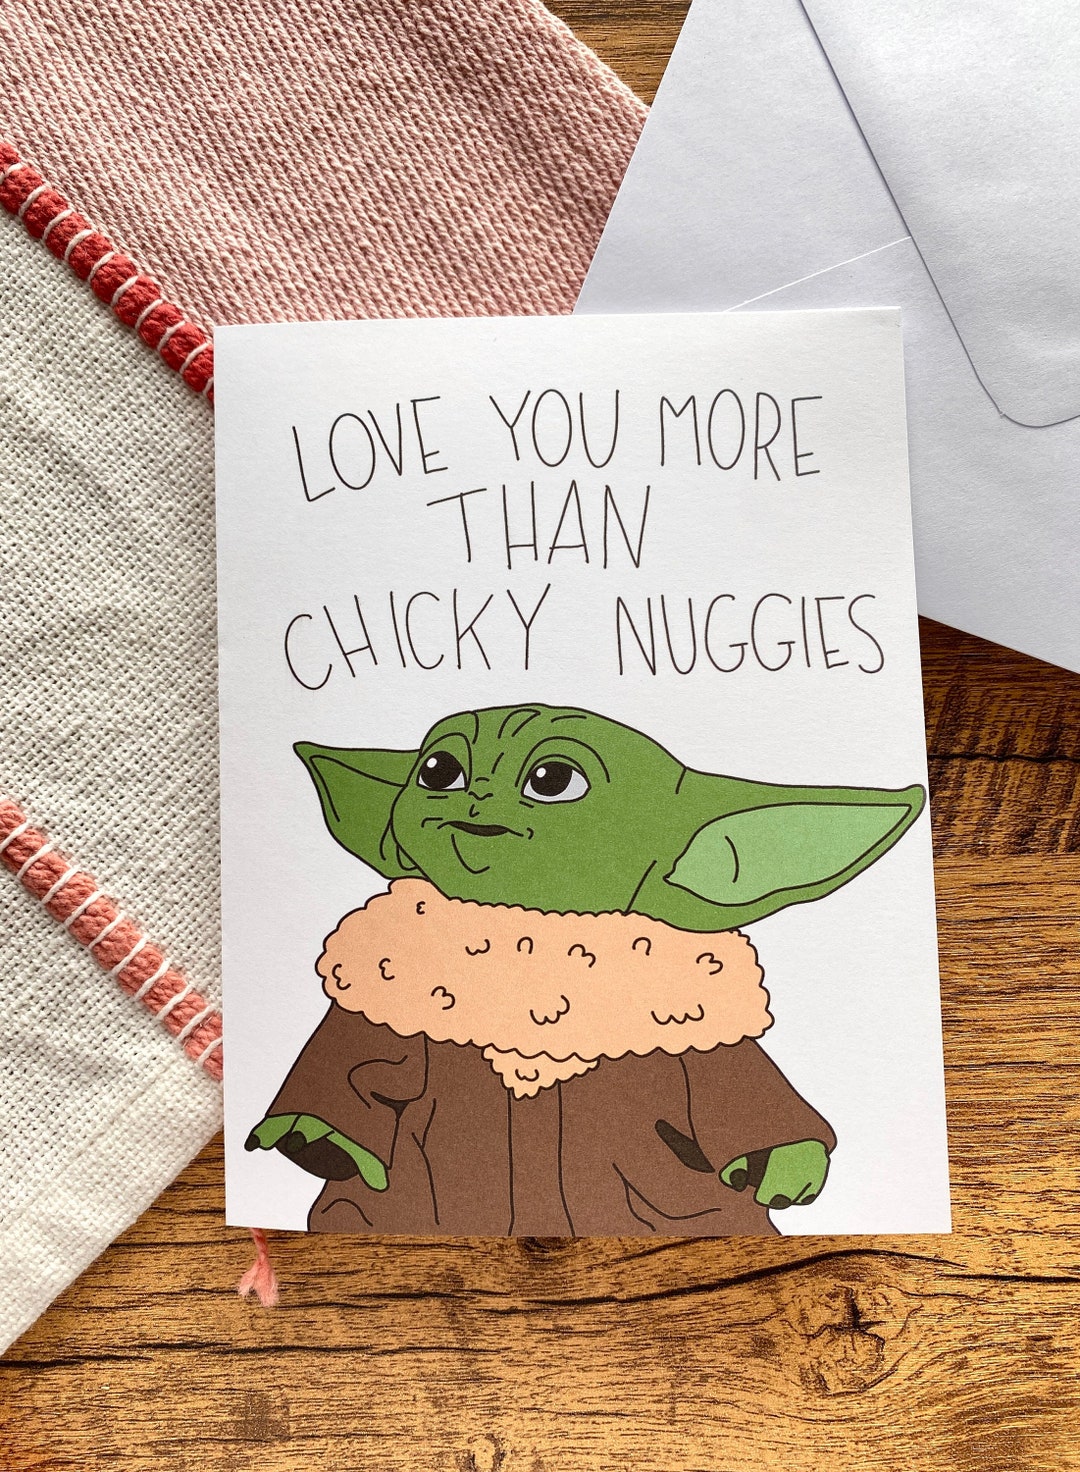 LOVE YOU MORE
THAN
CHICKY NUGGIES